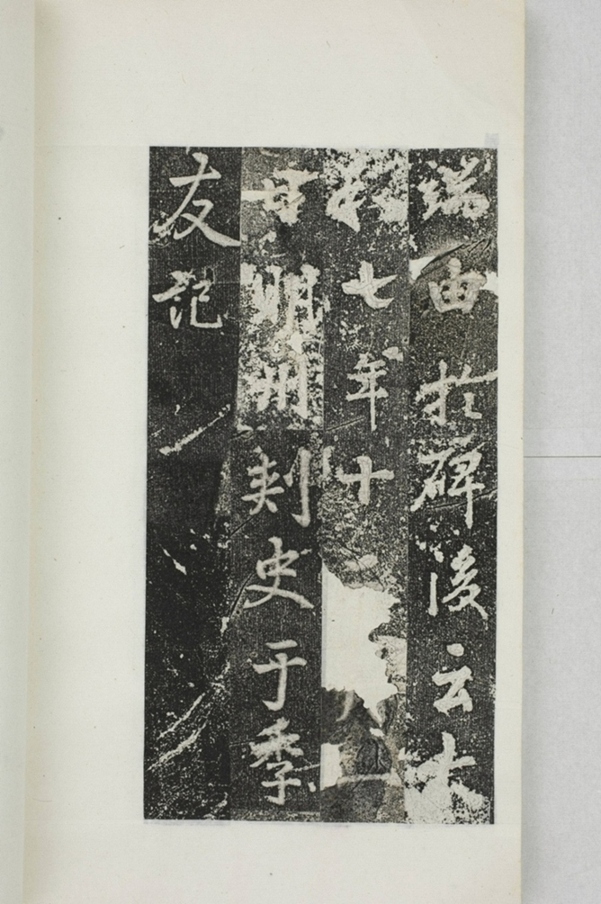 端由扵碑後云大
和七年十
明州刺史于季
友記